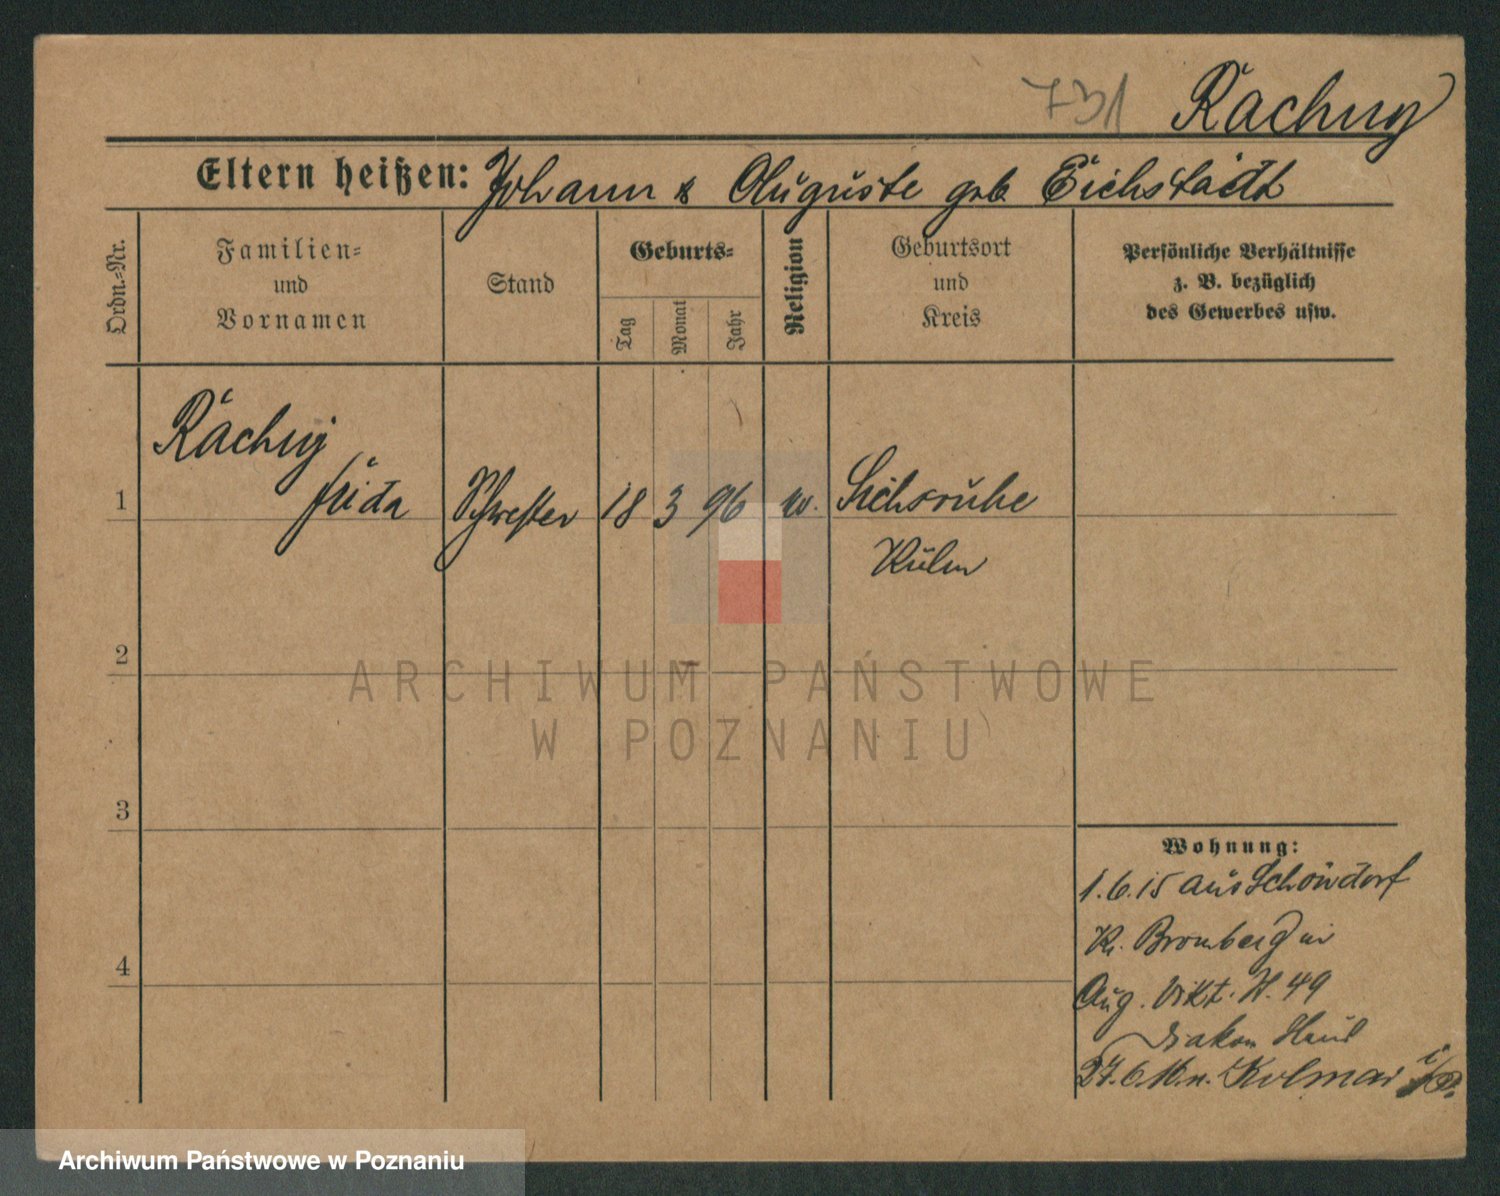 731
Rachuy
Eltern heißen: Johann & Auguste geb. Eichstädt
Ordn.-Nr.
Familien-
und
Vornamen
Stand
Geburts-
Tag
Monat
Jahr
Religion
Geburtsort
und
Kreis
Persönliche Verhältnisse
z. B. bezüglich
des Gewerbes usw.
Rachuy
1 Frida Schwester 18 3 96 ev.
Kulm
2
ARCHIWUM PAŃSTWOWE
W POZNANIU
3
Wohnung:
1.6.15 aus Schöndorf
Kr. Bromberg in
4
Aug. Vikt. 49
Diakon Haus
27.6. n. Kolmar i/P.
Archiwum Państwowe w Poznaniu